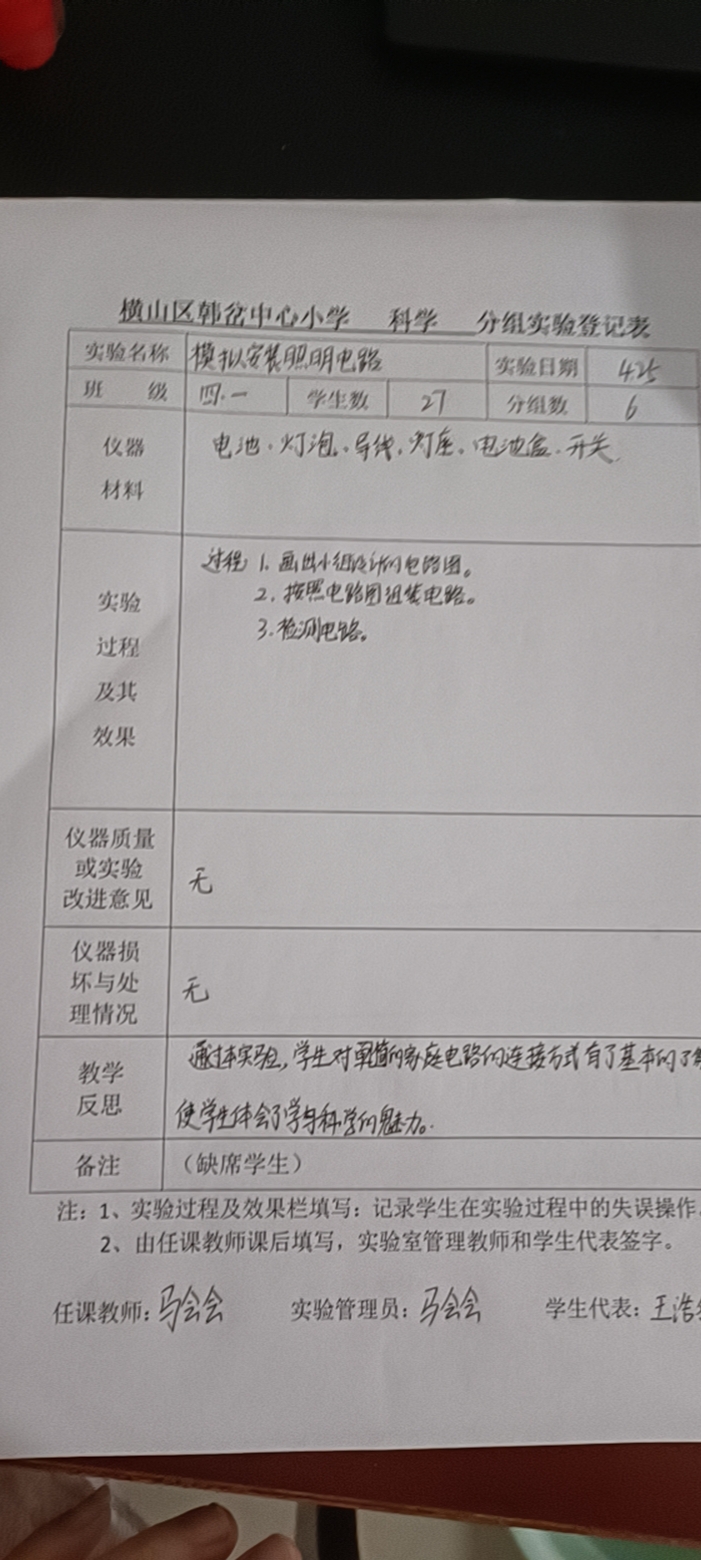 横山区韩岔中心小学 科学 分组实验登记表
实验名称 模拟安装照明电路 实验日期 4.25
班 级 四.一 学生数 27 分组数 6
仪器 电池、灯泡、导线、灯座、电池盒、开关
材料
过程 1. 画出小组设计的电路图。
2. 按照电路图组装电路。
3. 检测电路。
实验
过程
及其
效果
仪器质量
或实验
改进意见
无
仪器损
坏与处
理情况
无
教学
反思
通过本实验,学生对单的家庭电路的连接方式有了基本的了
使学生体会了学科学的魅力。
备注 （缺席学生）
注：1、实验过程及效果栏填写：记录学生在实验过程中的失误操作
2、由任课教师课后填写，实验室管理教师和学生代表签字。
任课教师：马会会 实验管理员：马会会 学生代表：王浩